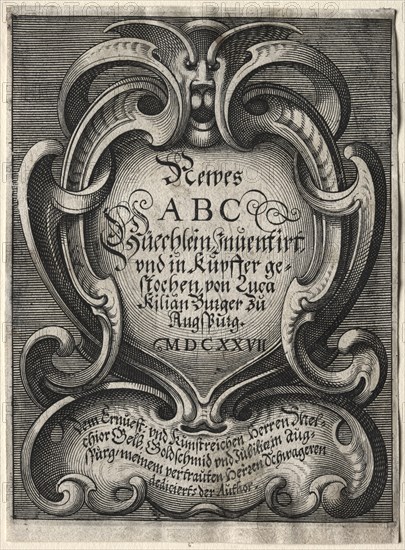 Newes
ABC
Büechlein Inuentirt
vnd in Kupffer ge-
stochen von Luca
Kilian Burger zu
Augspurg.
MDCXXVII
Dem Ernuest: vnd Kunstreichen Herren Mel-
chior Gelb Goldschmid vnd Jubilier in Aug-
spurg. meinem vertrautten Herzen Schwageren
dediciert der Author.